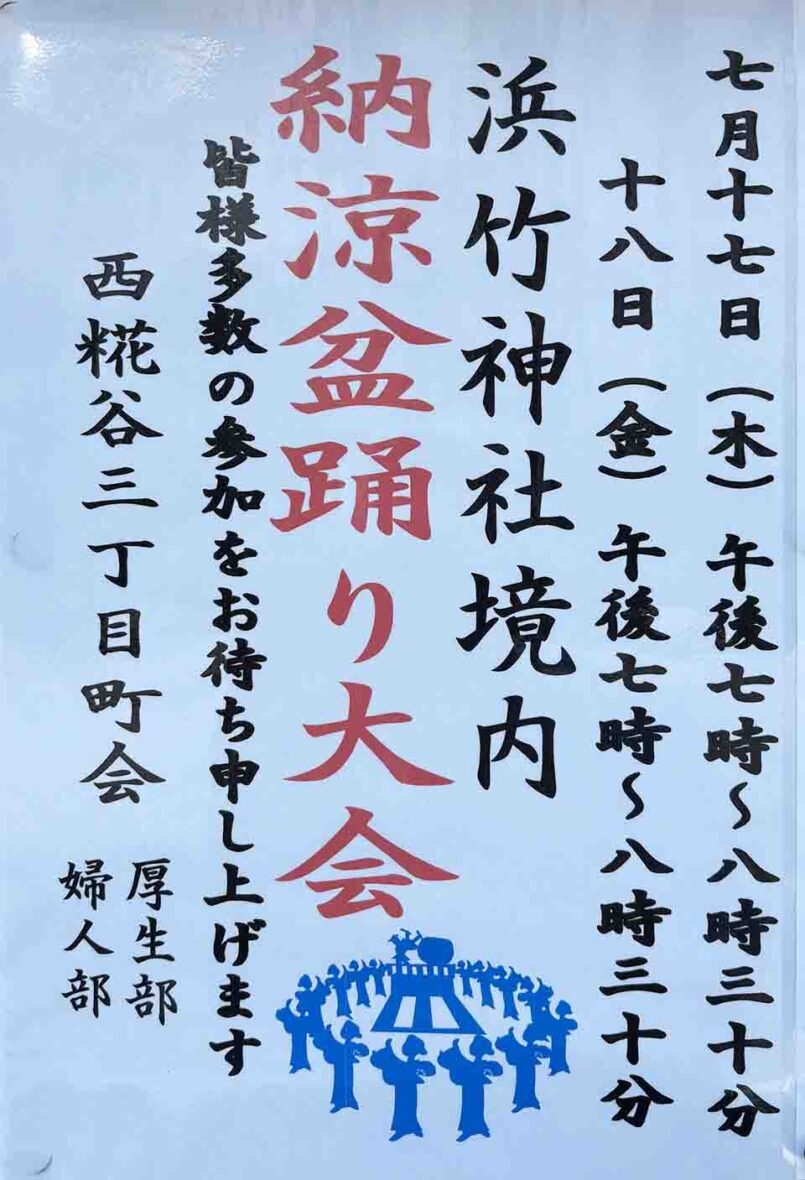 七月十七日（木）午後七時～八時三十分
十八日（金）午後七時～八時三十分
浜竹神社境内
納涼盆踊り大会
皆様多数の参加をお待ち申し上げます
西糀谷三丁目町会
厚生部
婦人部